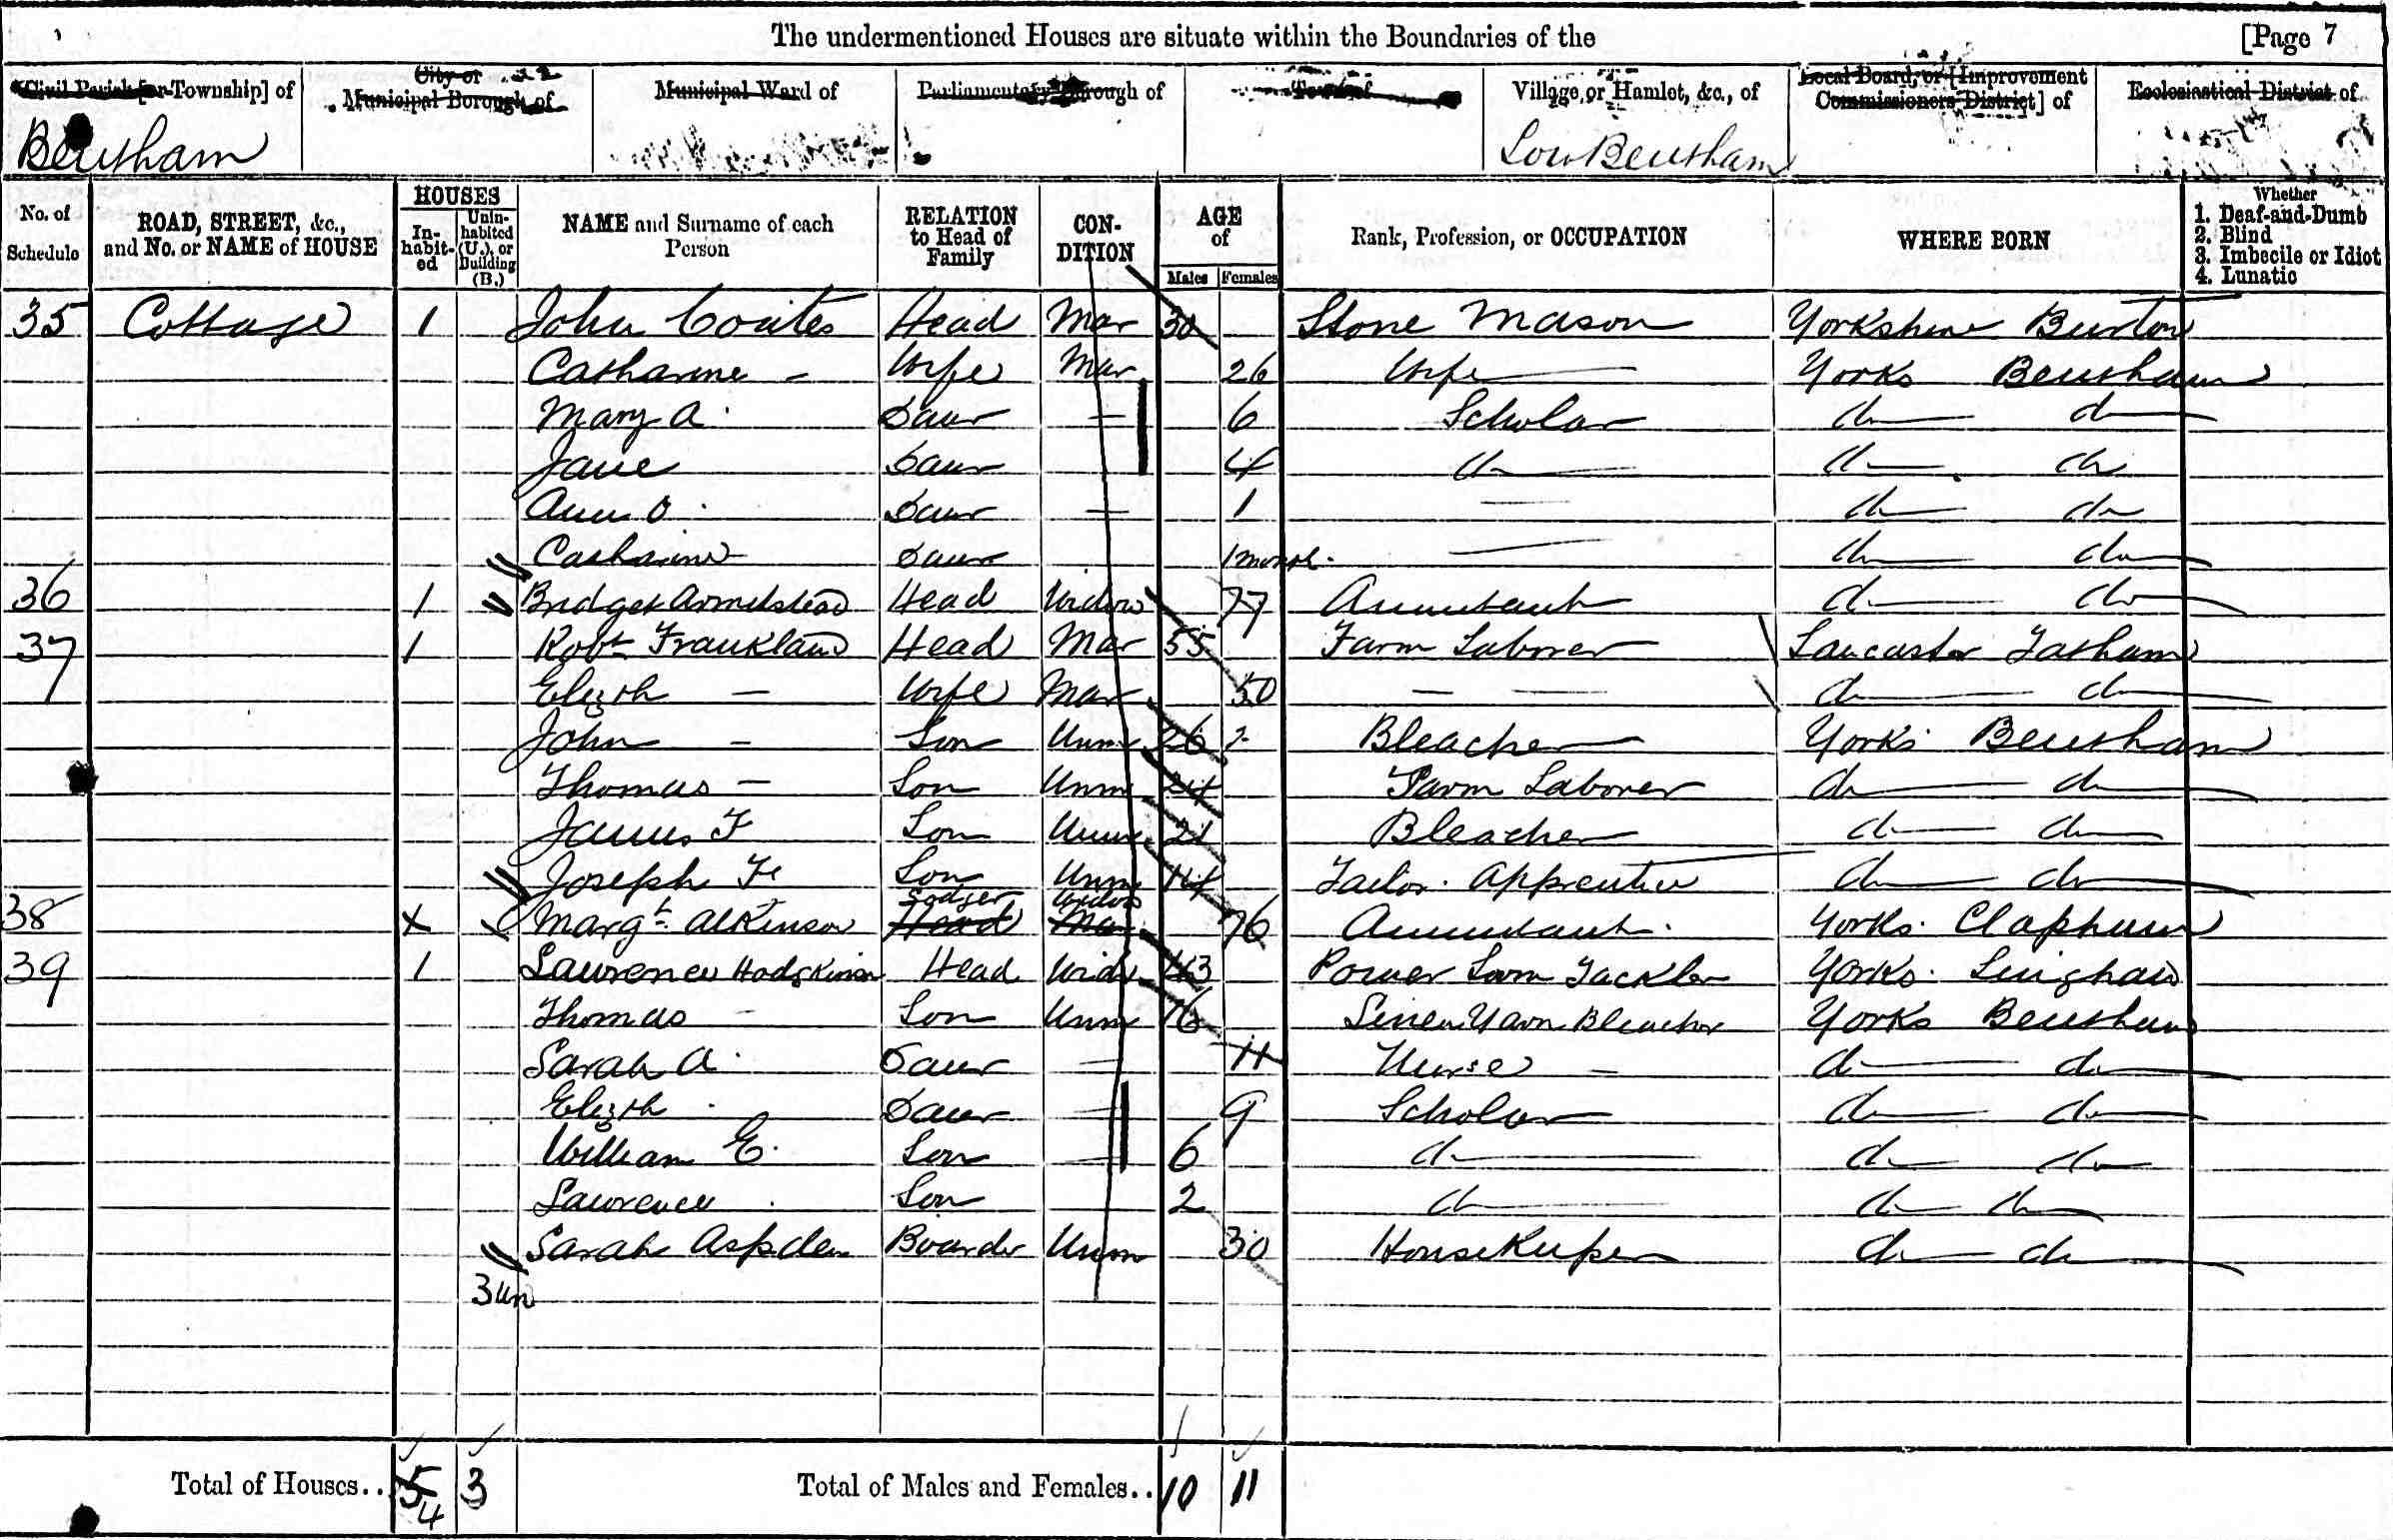 The undermentioned Houses are situate within the Boundaries of the [Page 7
Civil Parish [or Township] of City or Municipal Borough of Municipal Ward of Parliamentary Borough of Town of Village or Hamlet, &c., of Local Board, or [Improvement Commissioners District] of Ecclesiastical District of
Bentham Low Bentham
No. of Schedule ROAD, STREET, &c., and No. or NAME of HOUSE HOUSES In-habit-ed Unin-habited (U.), or Building (B.) NAME and Surname of each Person RELATION to Head of Family CON-DITION AGE of Males Females Rank, Profession, or OCCUPATION WHERE BORN Whether 1. Deaf-and-Dumb 2. Blind 3. Imbecile or Idiot 4. Lunatic
35 Cottage 1 John Coates Head Mar 30 Stone Mason Yorkshire Burton
Catharine - Wife Mar 26 Wife Yorks Bentham
Mary A. Daur — 6 Scholar do do
Jane Daur 4 do do do
Ann O. Daur — 1 — do do
Catharine Daur 1 month — do do
36 1 Bridget Armitstead Head Widow 77 Annuitant do do
37 1 Robt Frankland Head Mar 55 Farm Laborer Lancaster Tatham
Elizth — Wife Mar 50 — — do do
John — Son Unm 26 2 Bleacher Yorks Bentham
Thomas — Son Unm 24 Farm Laborer do do
James F Son Unm 21 Bleacher do do
Joseph F Son Unm 14 Tailor Apprentice do do
38 X Margt Atkinson Head Lodger Mar Widow 76 Annuitant Yorks. Clapham
39 1 Lawrence Hodgkinson Head Widr 43 Power Loom Tackler Yorks.
Thomas — Son Unm 16 Linen Yarn Bleacher Yorks Bentham
Sarah A. Daur — 11 Nurse — do do
Elizth Daur — 9 Scholar do do
William E. Son — 6 do do do
Lawrence Son 2 do do do
Sarah Aspden Boarder Unm 30 Housekeeper do do
3 un
Total of Houses.. 5 4 3 Total of Males and Females.. 10 11